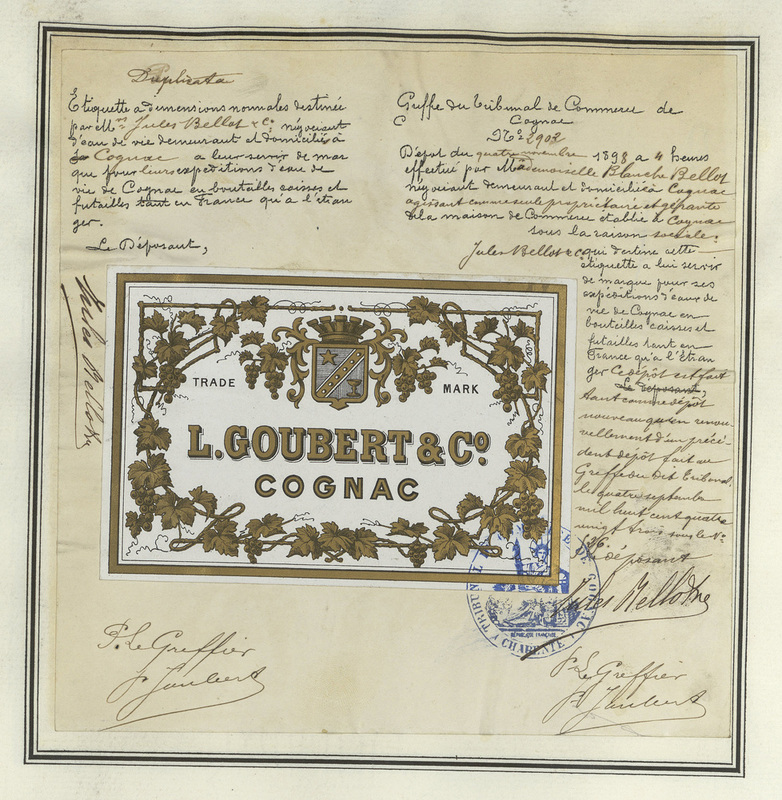 Duplicata
Etiquette a dimensions normales destinée
par M.rs Jules Bellot & Co négociant
d'eau de vie demeurant et domiciliés à
Cognac a leur servir de mar
que pour leurs expéditions d'eau de
vie de Cognac en bouteilles caisses et
futailles tant en France qu'a l'étran
ger.
Le Déposant,
Jules Bellot & Co
Greffe du Tribunal de Commerce de
Cognac
No 2902
Dépot du quatre novembre 1898 a 4 heures
effectué par Mademoiselle Blanche Bellot
négociant demeurant et domiciliée à Cognac
agissant comme seule propriétaire et gérante
de la maison de Commerce établie à Cognac
sous la raison sociale:
Jules Bellot & Co qui destine cette
étiquette a lui servir
de marque pour ses
expéditions d'eaux de
vie de Cognac en
bouteilles caisses et
futailles tant en
France qu'a l'étran
ger Ce dépôt est fait
Le Déposant,
tant comme dépôt
nouveau qu'en renou
vellement d'un précé-
dent dépôt fait au
Greffe du dit Tribunal
le quatre septembre
mil huit cent quatre
vingt trois sous le No
126.
Le déposant
Jules Bellot & Co
TRADE MARK
L. GOUBERT & Co.
COGNAC
TRIBUNAL DE COGNAC
RÉPUBLIQUE FRANÇAISE
CHARENTE
P. Le Greffier
P. Le Greffier